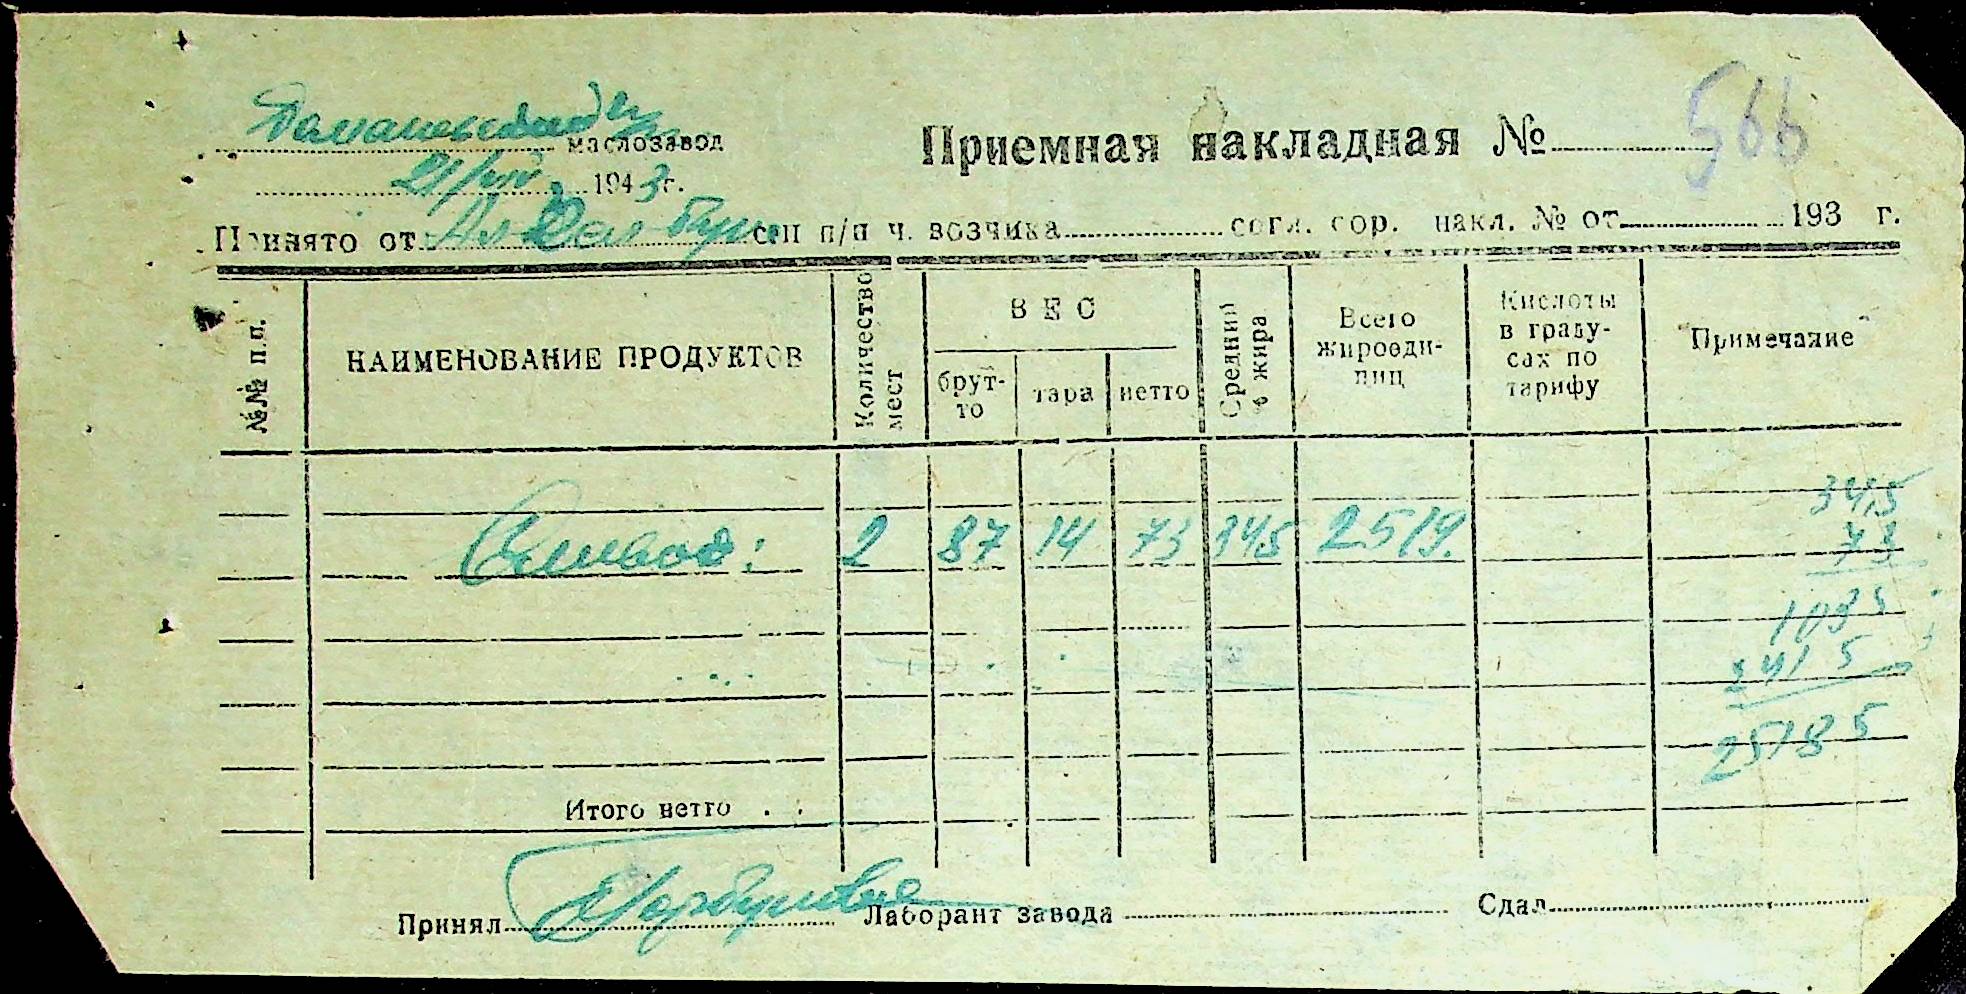 маслозавод
21/VIII 1943 г.
Приемная накладная № 566
Принято от сеп п/п ч. возчика согл. сор. накл. № от 193 г.
№№ п.п.
НАИМЕНОВАНИЕ ПРОДУКТОВ
Количество мест
ВЕС
брут-
то
тара
нетто
Средний
% жира
Всего
жироеди-
ниц
Кислоты
в граду-
сах по
тарифу
Примечание
Сливок: 2 87 14 73 345 2519.
34,5
73
1035
2415
25185
Итого нетто . .
Принял Лаборант завода Сдал